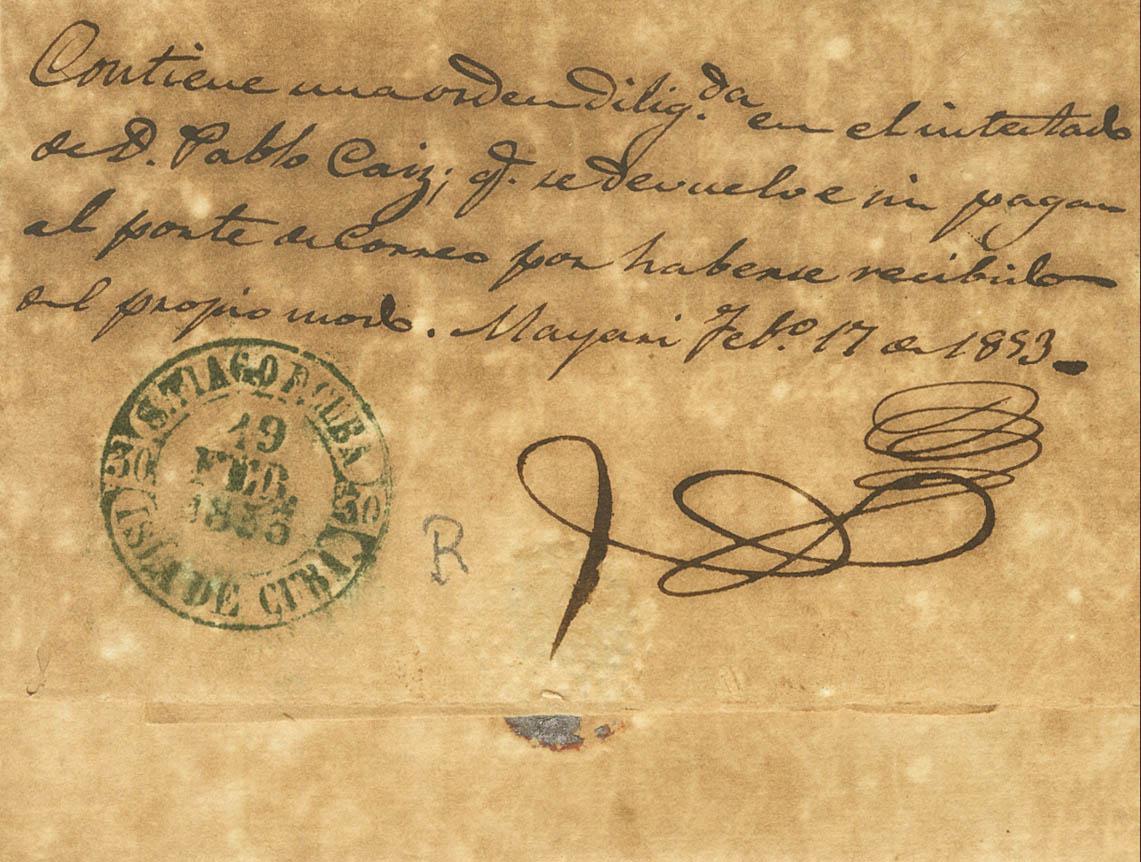 Contiene una orden dilig.da en el intestado
de D. Pablo Caiz; q.e se devuelve sin pagar
el porte de Correo por haberse recibido
del propio modo. Mayari Feb.o 17 de 1853.
S.TIAGO D. CUBA
19
FEB.
1853
50
50
ISLA DE CUBA.
R